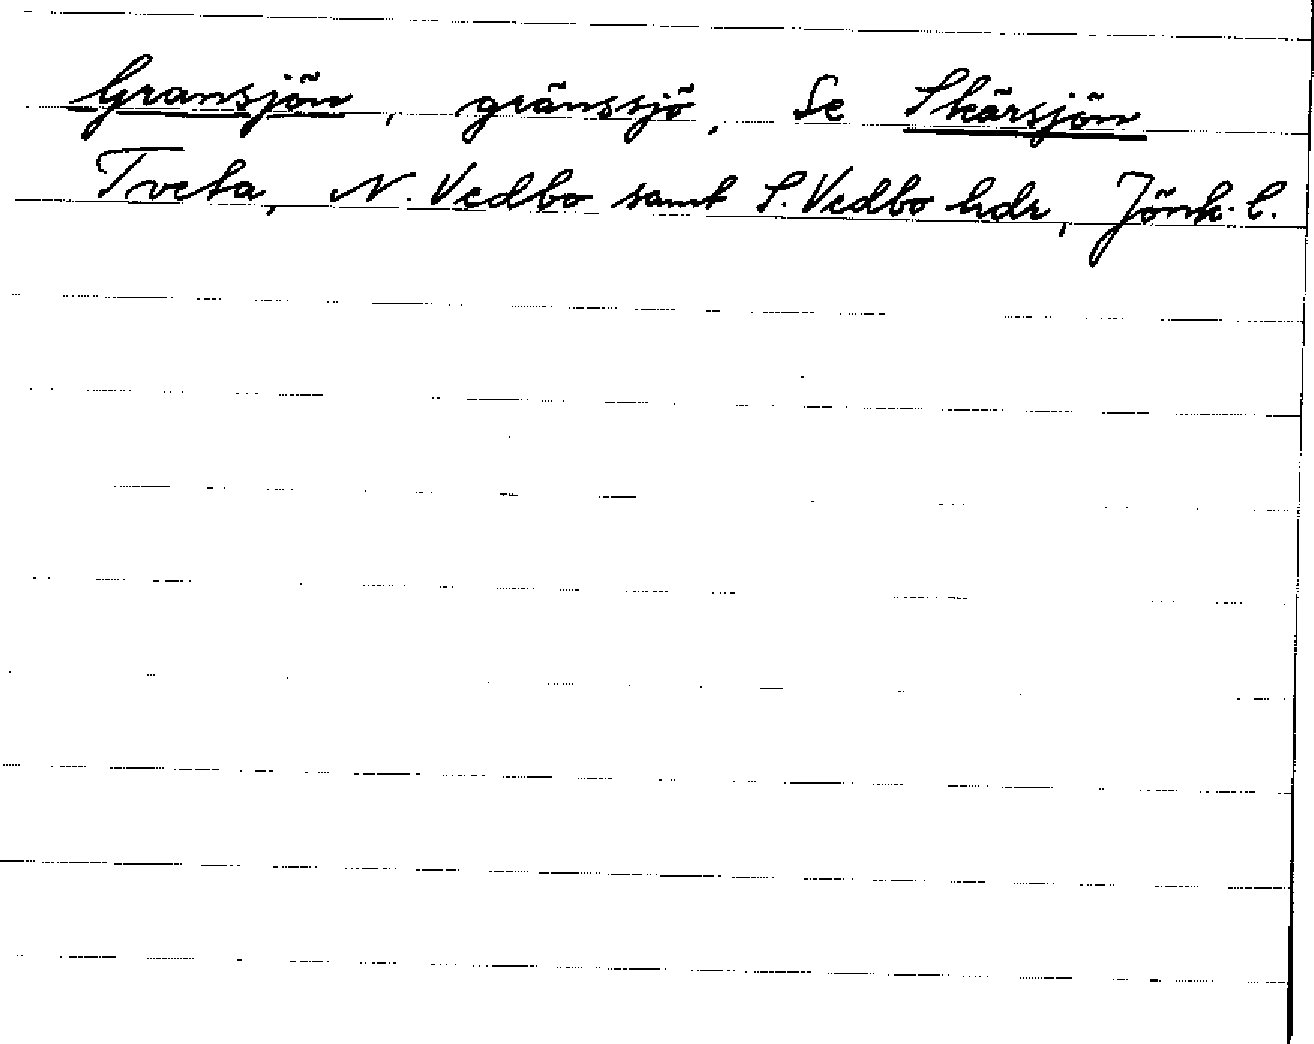 Gransjön, gränssjö, Se Skärsjön
Tveta, N. Vedbo samt S. Vedbo hdr, Jönk. l.